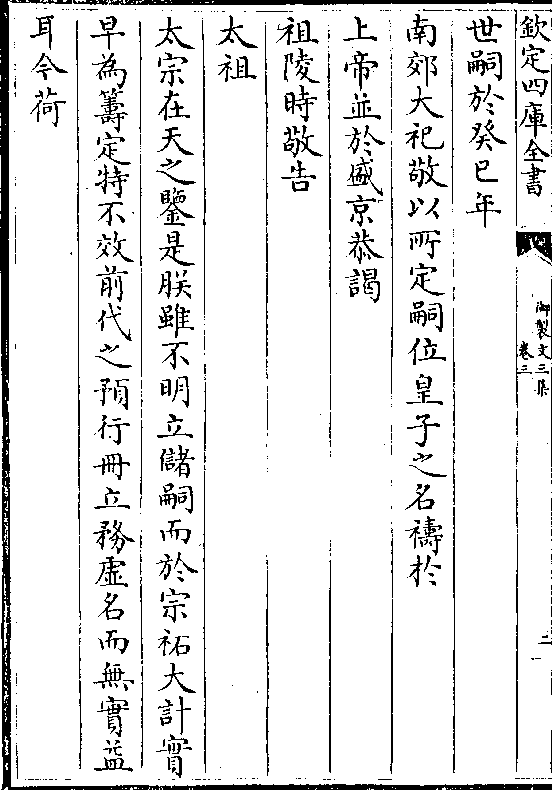 欽定四庫全書
御製文三集
卷三
二
世嗣於癸巳年
南郊大祀敬以所定嗣位皇子之名禱於
上帝並於盛京恭謁
祖陵時敬告
太祖
太宗在天之鑒是朕雖不明立儲嗣而於宗祏大計實
早為籌定特不效前代之預行冊立務虛名而無實益
耳今荷